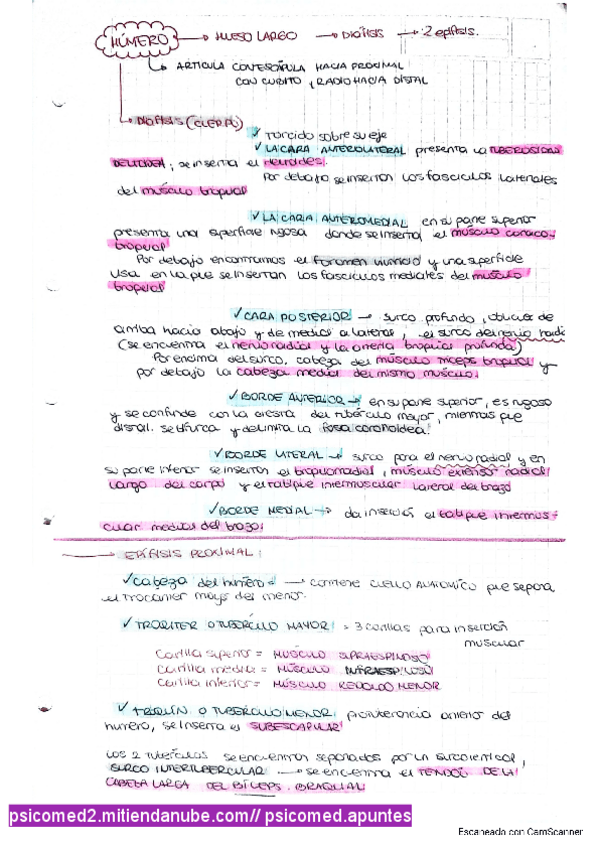 HÚMERO → HUESO LARGO → DIÁFISIS → 2 epífisis.
ARTICULA CON ESCÁPULA HACIA PROXIMAL
CON CUBITO Y RADIO HACIA DISTAL
DIÁFISIS (CUERPO)
✓ Torcido sobre su eje
✓ LA CARA ANTEROLATERAL presenta la TUBEROSIDAD
DELTOIDEA; se inserta el deltoides.
Por debajo se insertan los fascículos laterales
del músculo braquial
✓ LA CARA ANTEROMEDIAL en su parte superior
presenta una superficie rugosa donde se inserta el músculo coraco-
braquial
Por debajo encontramos el foramen nutricio y una superficie
lisa en la que se insertan los fascículos mediales del músculo
braquial
✓ CARA POSTERIOR → surco profundo, oblicuo de
arriba hacia abajo y de medial a lateral, el surco del nervio radial
(se encuentra el nervio radial y la arteria braquial profunda)
Por encima del surco, cabeza del músculo triceps braquial y
por debajo la cabeza medial del mismo músculo.
✓ BORDE ANTERIOR → en su parte superior, es rugoso
y se confunde con la cresta del tubérculo mayor, mientras que
distal. se bifurca y delimita la fosa coronoidea.
✓ BORDE LATERAL → surco para el nervio radial y en
su parte inferior se insertan el braquiorradial, músculo extensor radial
largo del carpo y el tabique intermuscular lateral del brazo
✓ BORDE MEDIAL → da inserción el tabique intermus-
cular medial del brazo.
→ EPÍFISIS PROXIMAL:
✓ Cabeza del húmero → contiene CUELLO ANATÓMICO que separa
el trocanter mayor del menor.
✓ TROQUITER O TUBÉRCULO MAYOR = 3 carillas para inserción
muscular
Carilla superior = MÚSCULO SUPRAESPINOSO
Carilla media = MÚSCULO INFRAESPINOSO
Carilla inferior = MÚSCULO REDONDO MENOR
✓ TROQUÍN O TUBÉRCULO MENOR: protuberancia anterior del
húmero, se inserta el SUBESCAPULAR
Los 2 tubérculos se encuentran separados por un surco vertical,
SURCO INTERTUBERCULAR → se encuentra el TENDÓN DE LA
CABEZA LARGA DEL BÍCEPS BRAQUIAL
psicomed2.mitiendanube.com// psicomed.apuntes
Escaneado con CamScanner